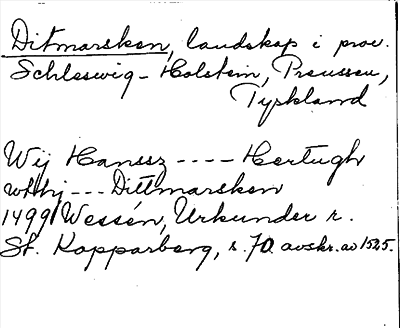 Ditmarsken, landskap i prov.
Schleswig-Holstein, Preussen,
Tyskland
Wij Hanssz ---- Hertugh
wthj --- Dittmarsken
1499 Wessén, Urkunder r.
St. Kopparberg, s. 70. avskr. av 1525.